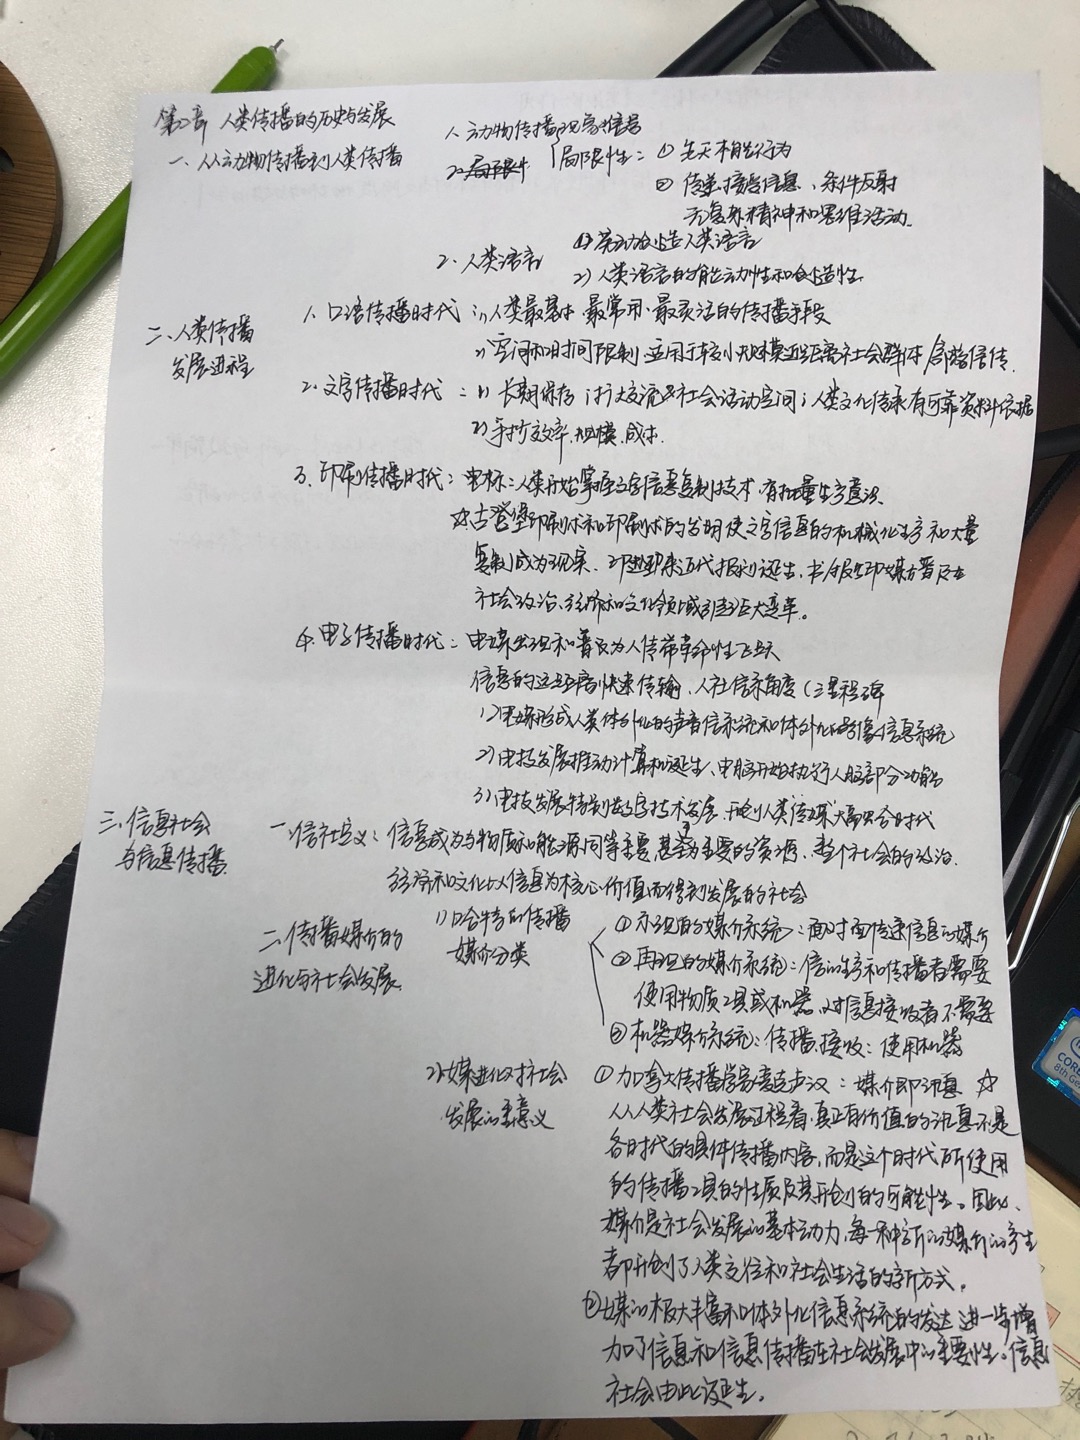 第二章 人类传播的历史与发展
一、从动物传播到人类传播
1. 动物传播
局限性：① 先天本能行为
② 传递、接受信息、条件反射
无复杂精神和思维活动.
2、人类语言
1) 劳动创造人类语言
2) 人类语言的能动性和创造性.
二、人类传播
发展进程
1、口语传播时代：1) 人类最基本、最常用、最灵活的传播手段
2) 空间和时间限制，适用于较小规模近距离社会群体
2、文字传播时代：1) 长期保存；扩大交流与社会活动空间；人类文化传承有可靠资料依据
2) 手抄效率、规模、成本.
3、印刷传播时代：电标：人类开始掌握文字信息复制技术，有批量生产意识.
☆古登堡印刷术和印刷术的发明使文字信息的机械化生产和大量
复制成为现实、近代报刊诞生，书报等印媒普及在
社会政治、经济和文化领域引起巨大变革。
4、电子传播时代：电媒出现和普及为人传带革命性飞跃
信息的远距离快速传输、人社信系角度(三里程碑
1) 电媒形成人类体外化的声音信系统和体外化影像信息系统
2) 电技发展推动计算机诞生、电脑开始执行人脑部分功能
3) 电技发展特别数字技术发展，开创人类传媒大融合时代
三、信息社会
与信息传播.
一、信社定义：信息成为与物质和能源同等重要甚至更为主要的资源、整个社会的政治、
经济和文化以信息为核心价值而得到发展的社会
二、传播媒介的
进化与社会发展.
1) 哈特的传播
媒介分类
① 示现的媒介系统：面对面传递信息的媒介
② 再现的媒介系统：信的生产和传播者需要
使用物质工具或机器，对信息接收者不需要
③ 机器媒介系统：传播、接收：使用机器
2) 媒进化对社会
发展的重意义
① 加拿大传播学家麦克卢汉：媒介即讯息 ☆
从人类社会发展过程看，真正有价值的讯息不是
各时代的具体传播内容，而是这个时代所使用
的传播工具的性质及其开创的可能性。因此，
媒介是社会发展的基本动力，每一种新的媒介的产生
都开创了人类交往和社会生活的新方式。
② 媒的极大丰富和体外化信息系统的发达进一步增
加了信息和信息传播在社会发展中的重要性，信息
社会由此诞生。
CORE
8th Ge